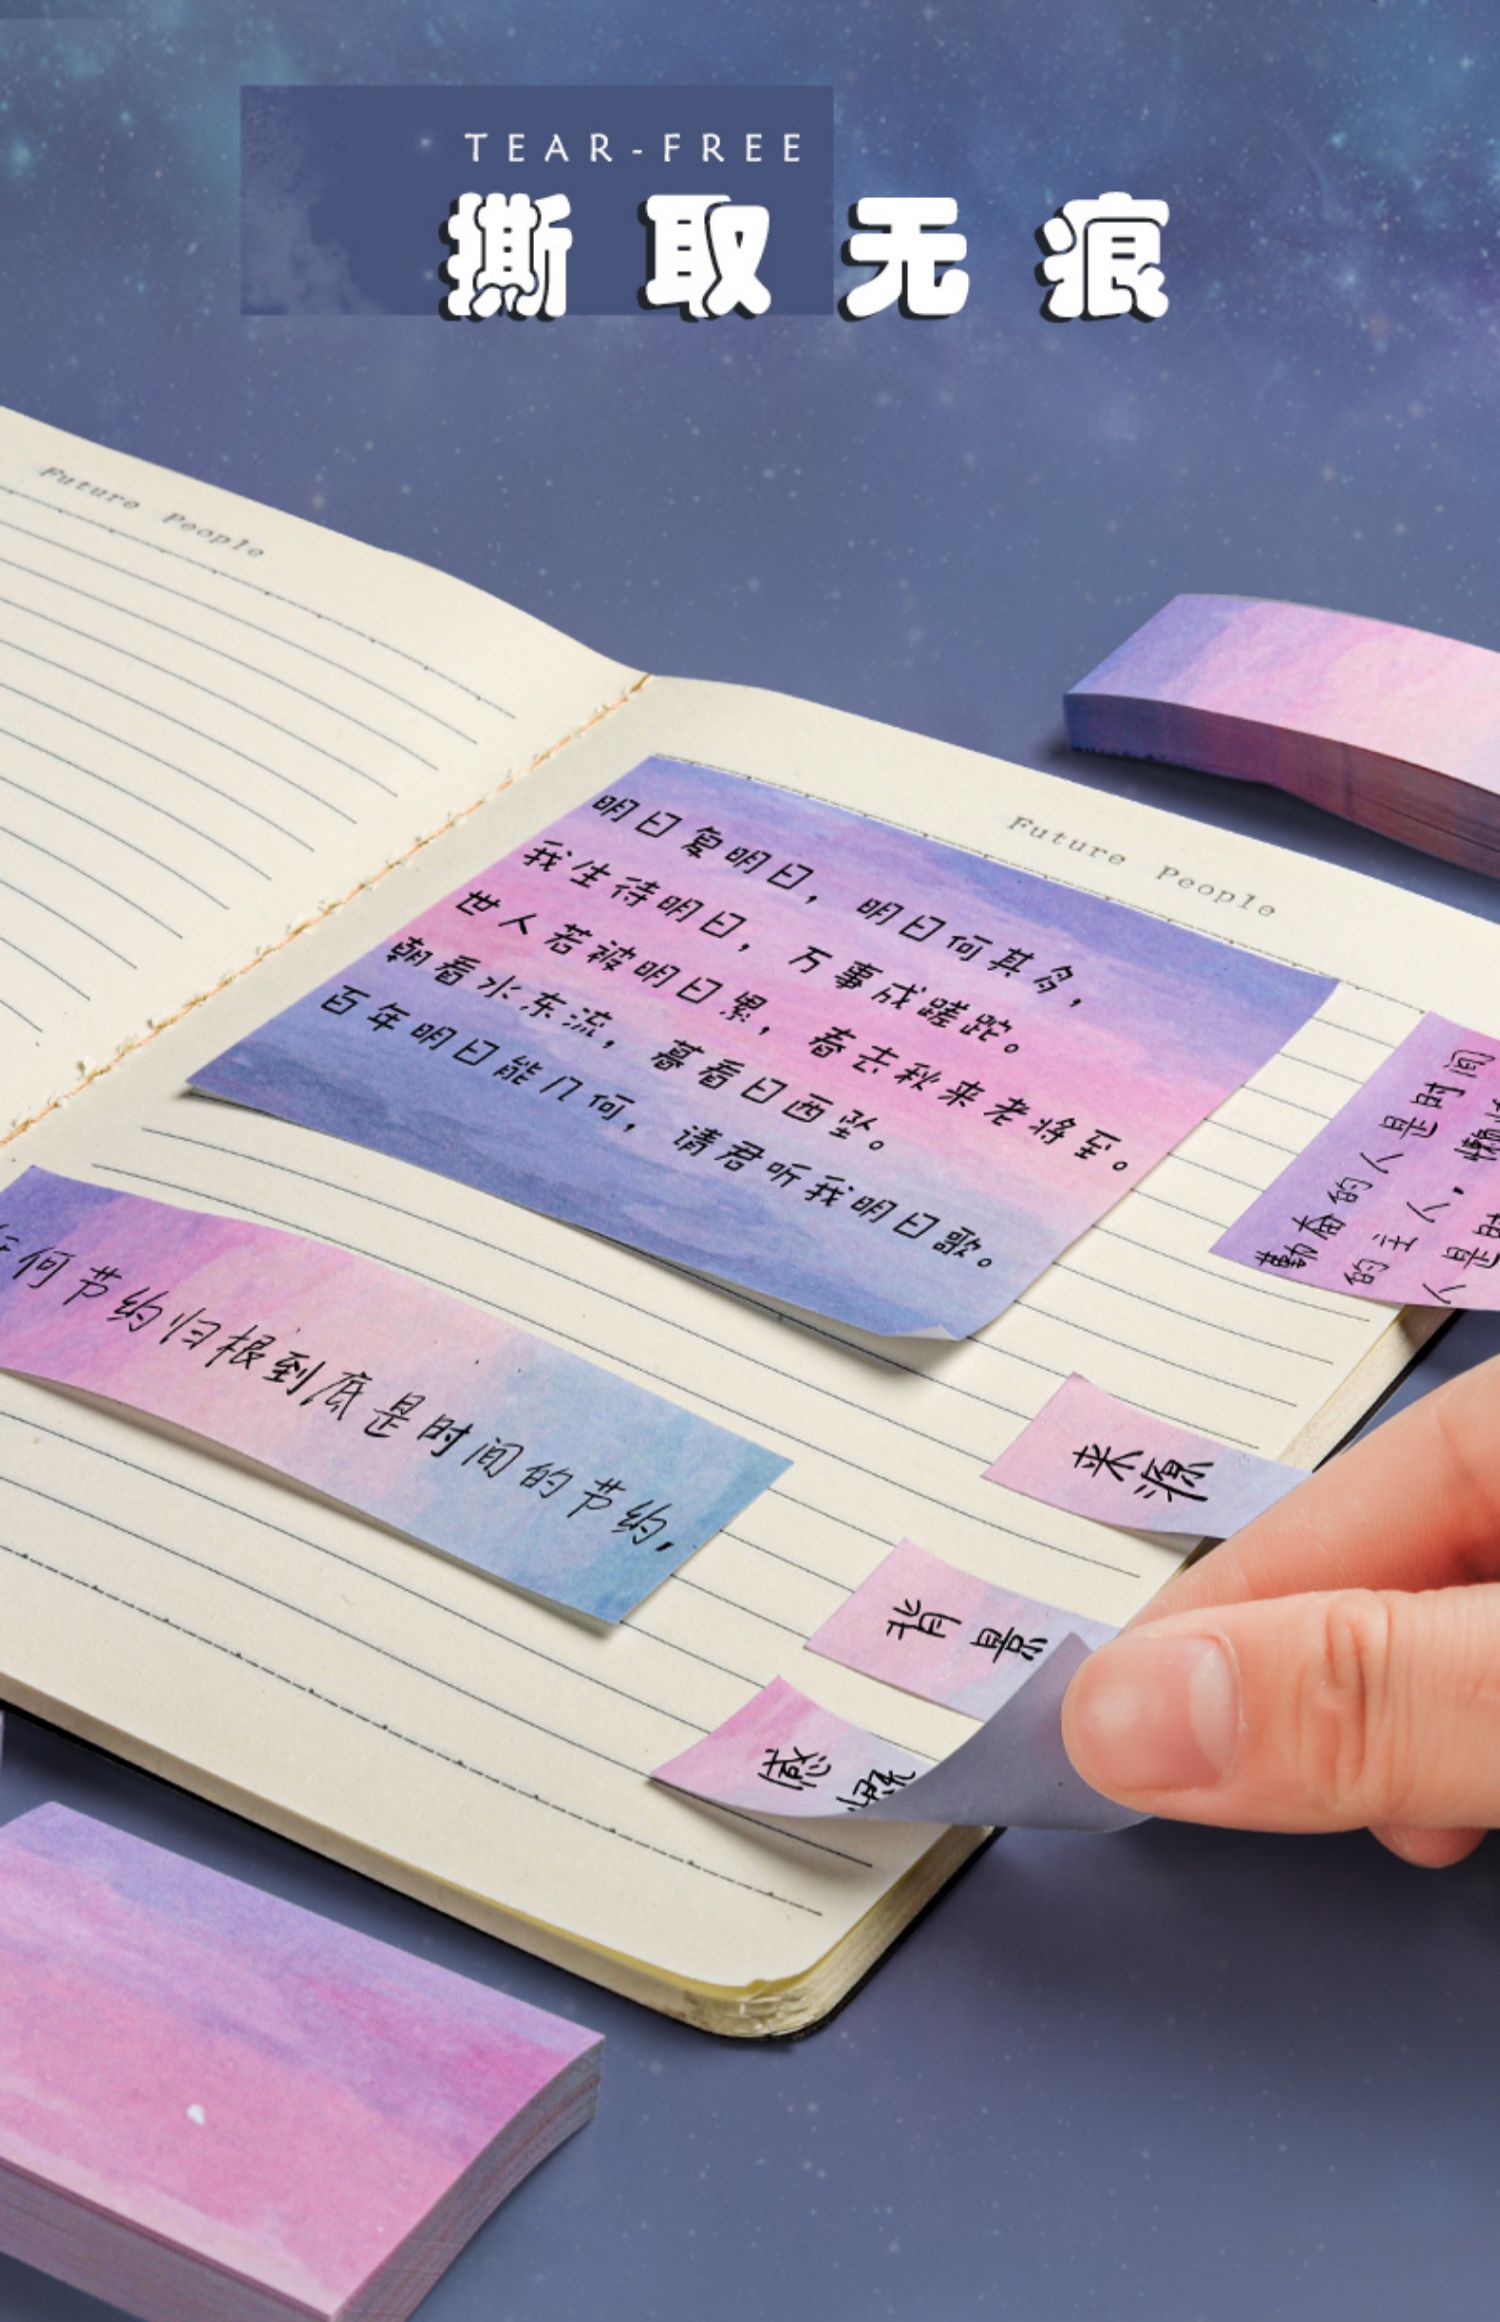 TEAR-FREE
撕取无痕
Future People
Future People
明日复明日，明日何其多，
我生待明日，万事成蹉跎。
世人若被明日累，春去秋来老将至。
朝看水东流，暮看日西坠。
百年明日能几何，请君听我明日歌。
何节约归根到底是时间的节约,
来源
背景
感